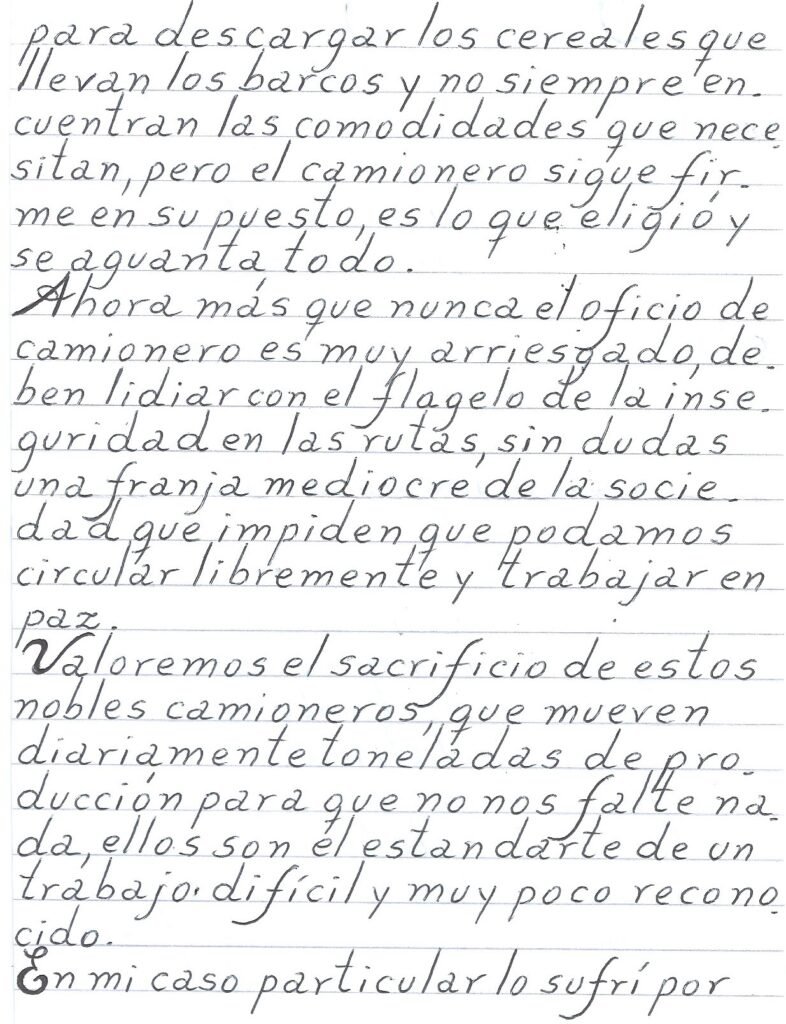 para descargar los cereales que
llevan los barcos y no siempre en-
cuentran las comodidades que nece
sitan, pero el camionero sigue fir-
me en su puesto, es lo que eligió y
se aguanta todo.
Ahora más que nunca el oficio de
camionero es muy arriesgado, de-
ben lidiar con el flagelo de la inse-
guridad en las rutas, sin dudas
una franja mediocre de la socie-
dad que impiden que podamos
circular libremente y trabajar en
paz.
Valoremos el sacrificio de estos
nobles camioneros, que mueven
diariamente toneladas de pro-
ducción para que no nos falte na-
da, ellos son el estandarte de un
trabajo difícil y muy poco recono
cido.
En mi caso particular lo sufrí por